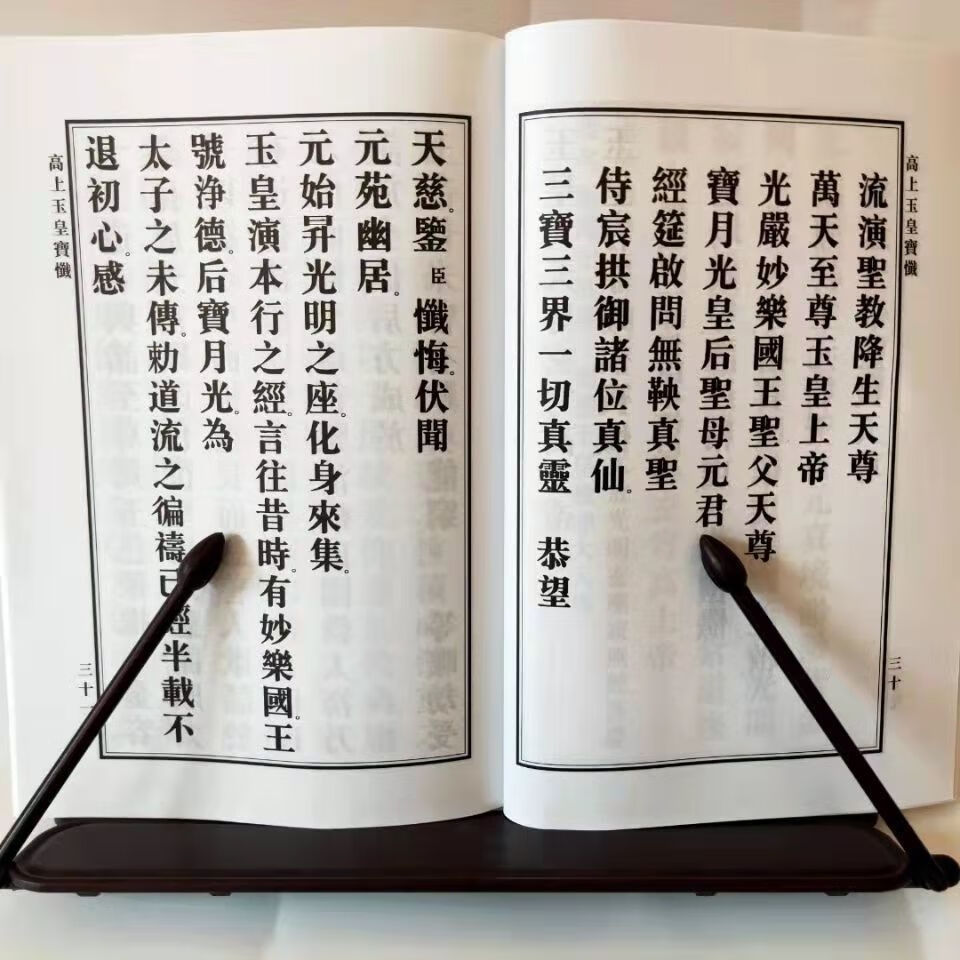 高上玉皇寶懺
流演聖教降生天尊
萬天至尊玉皇上帝
光嚴妙樂國王聖父天尊
寶月光皇后聖母元君
經筵啟問無鞅真聖
侍宸拱御諸位真仙。
三寶三界一切真靈 恭望
三十
天慈。鑒臣懺悔。伏聞
元苑幽居。
元始昇光明之座。化身來集。
玉皇演本行之經。言往昔時。有妙樂國。王
號浄德。后寶月光。為
太子之未傳。勅道流之徧禱。已經半載不
退初心。感
高上玉皇寶懺
三十